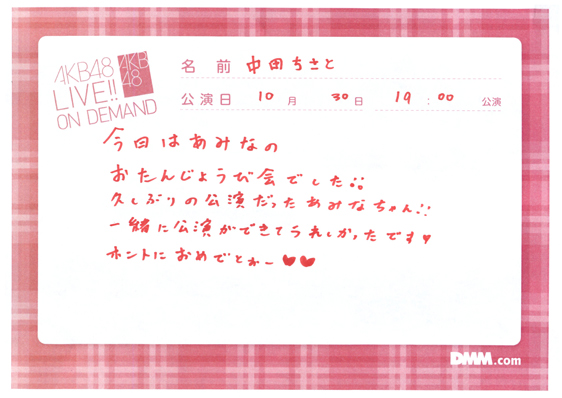 AKB48
LIVE!!
ON DEMAND
AKB
48
名 前 中田ちさと
公演日 10 月 30 日 19 : 00 公演
今日はあみなの
おたんじょうび会でした!!
久しぶりの公演だったあみなちゃん!!
一緒に公演ができてうれしかったです♥
ホントにおめでとおー♥♥
DMM.com